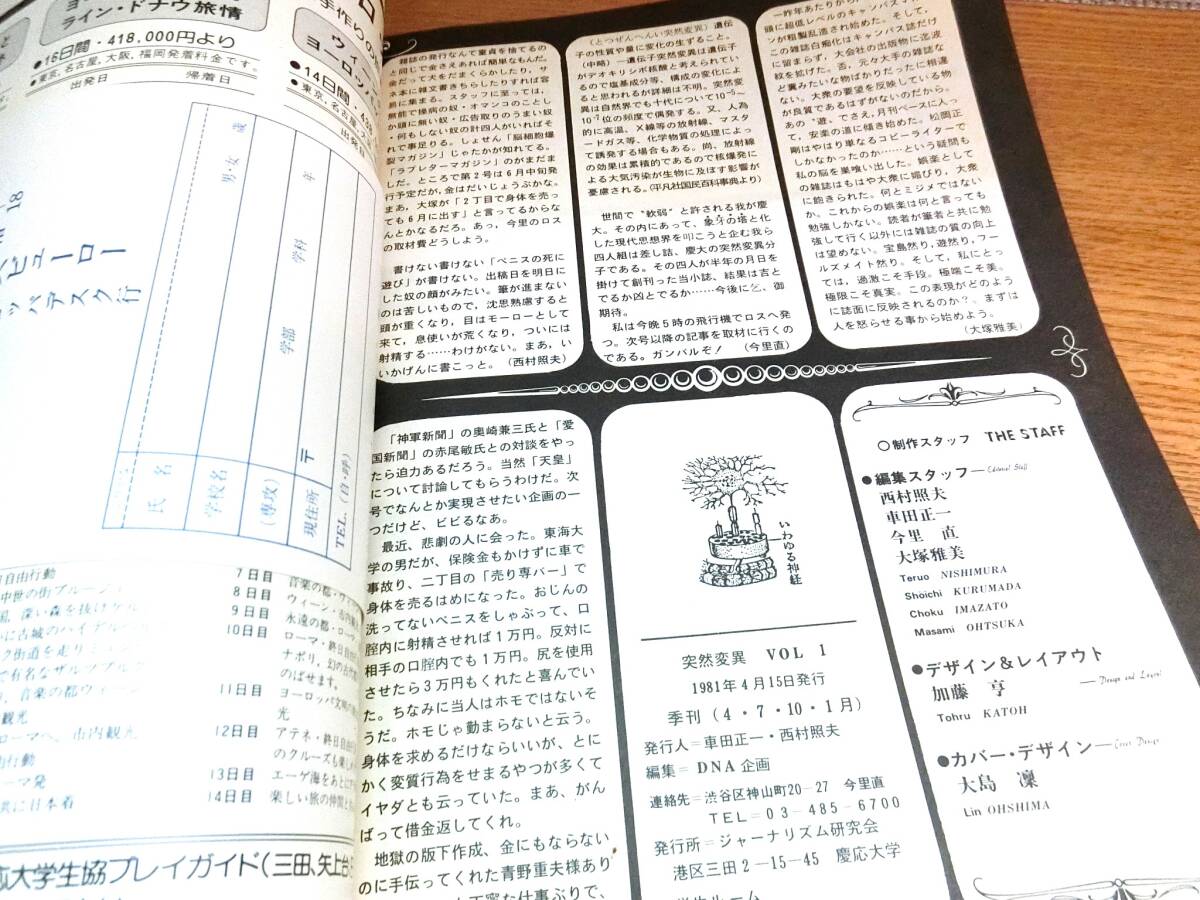 ライン・ドナウ旅情
16日間・418,000円より
東京,名古屋,大阪,福岡発着料金です。
出発日 帰着日
手作りの
14日間・438
東京,名古
出発
歳
男・女
年
学科
学部
〒
氏名
学校名
(専攻)
現住所
TEL.(自・呼)
18
自由行動
7日目
8日目
9日目
10日目
11日目
12日目
13日目
14日目
音楽の都・ウィ
ウィーン・市内観光
永遠の都・ロー
ローマ・終日自由
ナポリ,幻の古代
のばせます。
ヨーロッパ文明の
光
アテネ・終日自由行
のクルーズも楽し
エーゲ海をあとに
楽しい旅の仲間と
観光
ローマへ。市内観光
由行動
ーマ発
共に日本着
応大学生協プレイガイド(三田、矢上台
雑誌の発行なんて童貞を捨てるの
と同じで金さえあれば簡単なもんだ。
金だって犬をだまくらかしたり、ザ
ネ本に雑文書きちらしたりすれば容
易に集まる。スタッフに至っては、
無能で操病の奴・オマンコのことし
か頭に無い奴・広告取りのうまい奴
・何もしない奴の計四人がいればそ
れで事足りる。しょせん「脳細胞爆
裂マガジン」じゃたかが知れてる。
「ラブレターマガジン」のがまだま
しだ。ところで第2号は6月中旬発
行予定だが,金はだいじょうぶかな。
まあ、大塚が「2丁目で身体を売っ
ても6月に出す」と言ってるからな
んとかなるだろ。あっ、今里のロス
の取材費どうしよう。
書けない書けない「ペニスの死に
遊び」が書けない。出稿日を明日に
した奴の顔がみたい。筆が進まない
のは苦しいもので、沈思熟慮すると
頭が重くなり,目はモーローとして
来て,息使いが荒くなり,ついには
射精する……わけがない。まあ,い
いかげんに書こっと。(西村照夫)
(とつぜんへんい 突然変異)遺伝
子の性質や量に変化の生ずること。
(中略)―遺伝子突然変異は遺伝子
がデオキリシボ核酸と考えられてい
るので塩基成分等、構成の変化によ
ると思われるが詳細は不明。突然変
異は自然界でも十代について10⁻⁵〜
10⁻⁷位の頻度で偶発する。又、人為
的に高温、X線等の放射線、マスタ
ードガス等、化学物質の処理によっ
て誘発する場合もある。尚、放射線
の効果は累積的であるので核爆発に
よる大気汚染が生物に及ぼす影響が
憂慮される。(平凡社国民百科事典より)
世間で“軟弱”と許される我が慶
大。その内にあって、象牙の塔と化
した現代思想界を叩こうと企む我ら
四人組は差し詰、慶大の突然変異分
子である。その四人が半年の月日を
掛けて創刊った当小誌、結果は吉と
でるか凶とでるか……今後に乞、御
期待。
私は今晩5時の飛行機でロスへ発
つ。次号以降の記事を取材に行くの
である。ガンバルぞ! (今里直)
一昨年あたりから,
頭に超低レベルのキャンパス
ンが粗製乱造され始めた。そして、
この雑誌白痴化はキャンパス誌だけ
に留まらず、大会社の出版物に迄波
紋を拡げた。否、元々大手の雑誌な
ど糞みたいな物ばかりだったに相違
ない。大衆の要望を反映している物
が良質であるはずがないのだから。
あの“遊”でさえ,月刊ペースに入っ
て,安楽の道に傾き始めた。松岡正
剛はやはり単なるコピーライターで
しかなかったのか……という疑問も
私の脳を巣喰い出した。娯楽として
の雑誌はもはや大衆に媚びり,大衆
に飽きられた。何とミジメではない
か。これからの娯楽は何と言っても
勉強しかない。読者が筆者と共に勉
強して行く以外には雑誌の質の向上
は望めない。宝島然り,遊然り,フー
ルズメイト然り。そして,私にとっ
ては,過激こそ手段。極端こそ美。
極限こそ真実。この表現がどのよう
に誌面に反映されるのか?。まずは
人を怒らせる事から始めよう。
(大塚雅美)
「神軍新聞」の奥崎兼三氏と「愛
国新聞」の赤尾敏氏との対談をやっ
たら迫力あるだろう。当然「天皇」
について討論してもらうわけだ。次
号でなんとか実現させたい企画の一
つだけど、ビビるなあ。
最近、悲劇の人に会った。東海大
学の男だが、保険金もかけずに車で
事故り、二丁目の「売り専バー」で
身体を売るはめになった。おじんの
洗ってないペニスをしゃぶって、口
腔内に射精させれば1万円。反対に
相手の口腔内でも1万円。尻を使用
させたら3万円もくれたと喜んでい
た。ちなみに当人はホモではないそ
うだ。ホモじゃ勤まらないと云う。
身体を求めるだけならいいが、とに
かく変質行為をせまるやつが多くて
イヤダとも云っていた。まあ、がん
ばって借金返してくれ。
地獄の版下作成、金にもならない
のに手伝ってくれた青野重夫様あり
丁寧な仕事ぶりで、
いわゆる神経
突然変異 VOL 1
1981年4月15日発行
季刊(4・7・10・1月)
発行人=車田正一・西村照夫
編集=DNA企画
連絡先=渋谷区神山町20-27 今里直
TEL=03-485-6700
発行所=ジャーナリズム研究会
港区三田2-15-45 慶応大学
学生ルーム
○制作スタッフ THE STAFF
●編集スタッフ—Editorial Staff
西村照夫
車田正一
今里 直
大塚雅美
Teruo NISHIMURA
Shoichi KURUMADA
Choku IMAZATO
Masami OHTSUKA
●デザイン&レイアウト
加藤 亨 —Design and Layout
Tohru KATOH
●カバー・デザイン—Cover Design
大島 凜
Lin OHSHIMA